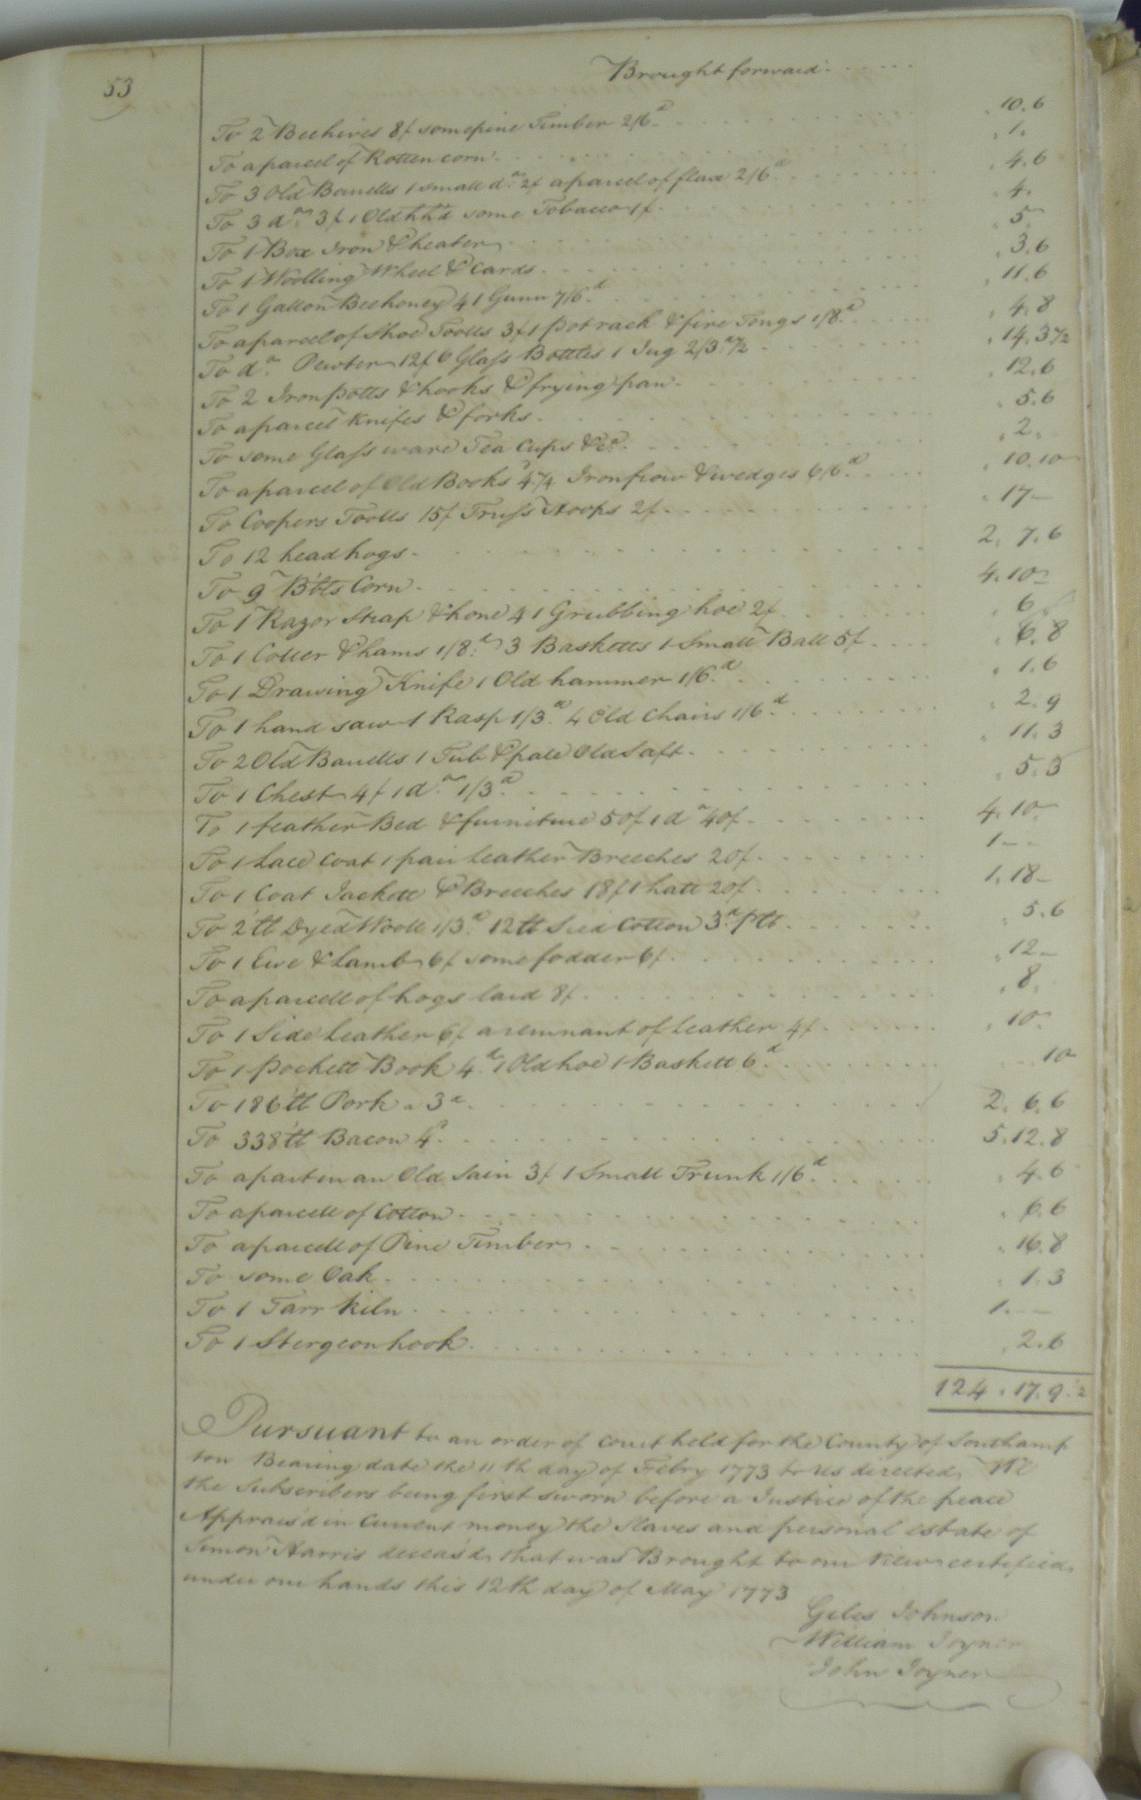 53
Brought forward
To 2 Beehives 8/ some pine Timber 2/6d . 10.6
To a parcel of Rotten corn . 1.
To 3 Old Barrells 1 small do 2/ a parcel of flax 2/6d . 4.6
To 3 do 3/ 1 Old hhd some Tobacco 1/ . 4.
To 1 Box Iron & heater . 5
To 1 Woolling Wheel & Cards . 3.6
To 1 Gallon Beehoney 4 1 Gunn 7/6d . 11.6
To a parcel of Shoe Tools 3/ 1 pot rack & fire Tongs 1/8d . 4.8
To do Pewter 12/ 6 Glass Bottles 1 Jug 2/3d½ . 14.3½
To 2 Iron potts & hooks & frying pan . 12.6
To a parcel knifes & forks . 5.6
To some Glass ware Tea Cups &c . 2.
To a parcel of Old Books 4/4 Iron frow & wedges 6/6d . 10.10
To Coopers Tools 15/ Truss Hoops 2/ . 17
To 12 head hogs . 2.7.6
To 9 Bbls Corn . 4.10
To 1 Razor Strap & hone 4 1 Grubbing hoe 2/ . 6
To 1 Coller & hams 1/8d 3 Basketts 1 Small Ball 5/ . 6.8
To 1 Drawing Knife 1 Old hammer 1/6d . 1.6
To 1 hand saw 1 Rasp 1/3d 4 Old Chairs 1/6d . 2.9
To 2 Old Barrells 1 Tub & pale Old Salt . 11.3
To 1 Chest 4/ 1 do 1/3d . 5.3
To 1 feather Bed & furniture 50/ 1 do 40/ . 4.10
To 1 Lace Coat 1 pair leather Breeches 20/ . 1--
To 1 Coat Jackett & Breeches 18/ 1 hatt 20/ . 1.18
To 2 tt Dyed Wooll 1/3d 12 tt Seed Cotton 3d p tt . 5.6
To 1 Ewe & Lamb 6/ some fodder 6/ . 12
To a parcell of hogs lard 8/ . 8.
To 1 Side leather 6/ a remnant of leather 4/ . 10
To 1 pockett Book 4d 1 Old hoe 1 Baskett 6d . 10
To 186 tt Pork a 3d . 2.6.6
To 338 tt Bacon 4d . 5.12.8
To a part in an Old Sain 3/ 1 Small Trunk 1/6d . 4.6
To a parcell of Cotton . 6.6
To a parcell of Pine Timber . 16.8
To some Oak . 1.3
To 1 Tarr kiln . 1.--
To 1 Stergeon hook . 2.6
124.17.9.½
Pursuant to an order of court held for the County of Southamp
ton Bearing date the 11th day of Febry 1773 to us directed, We
the Subscribers being first sworn before a Justice of the peace
Apprais'd in Current money the Slaves and personal estate of
Simon Harris deceas'd that was Brought to our View certified
under our hands this 12th day of May 1773
Giles Johnson
William Joyner
John Joyner